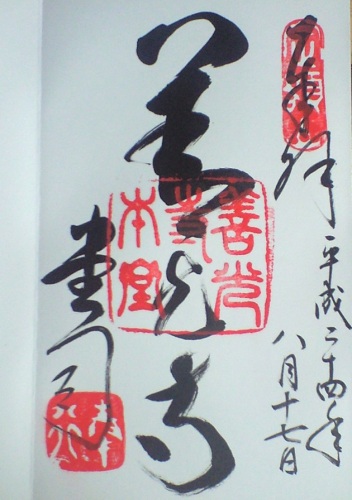 奉拝
平成二十四年
八月十七日
善光寺
善光寺本堂
堂司